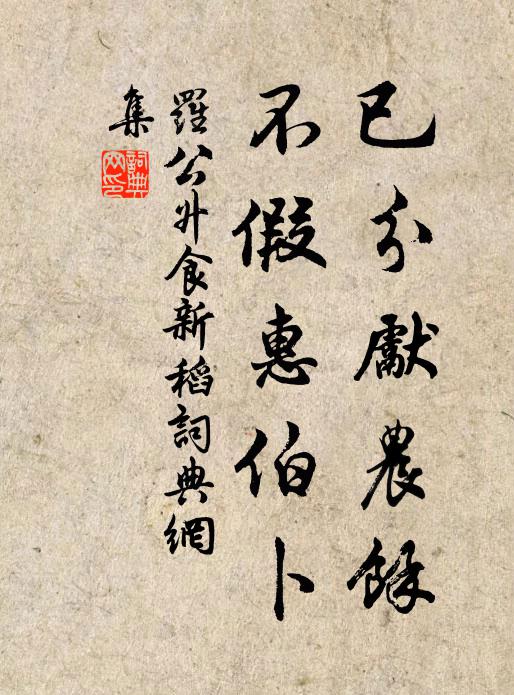 已分獻農餘
不假惠伯卜
羅公升食新稻詞典網
集
詞典網印